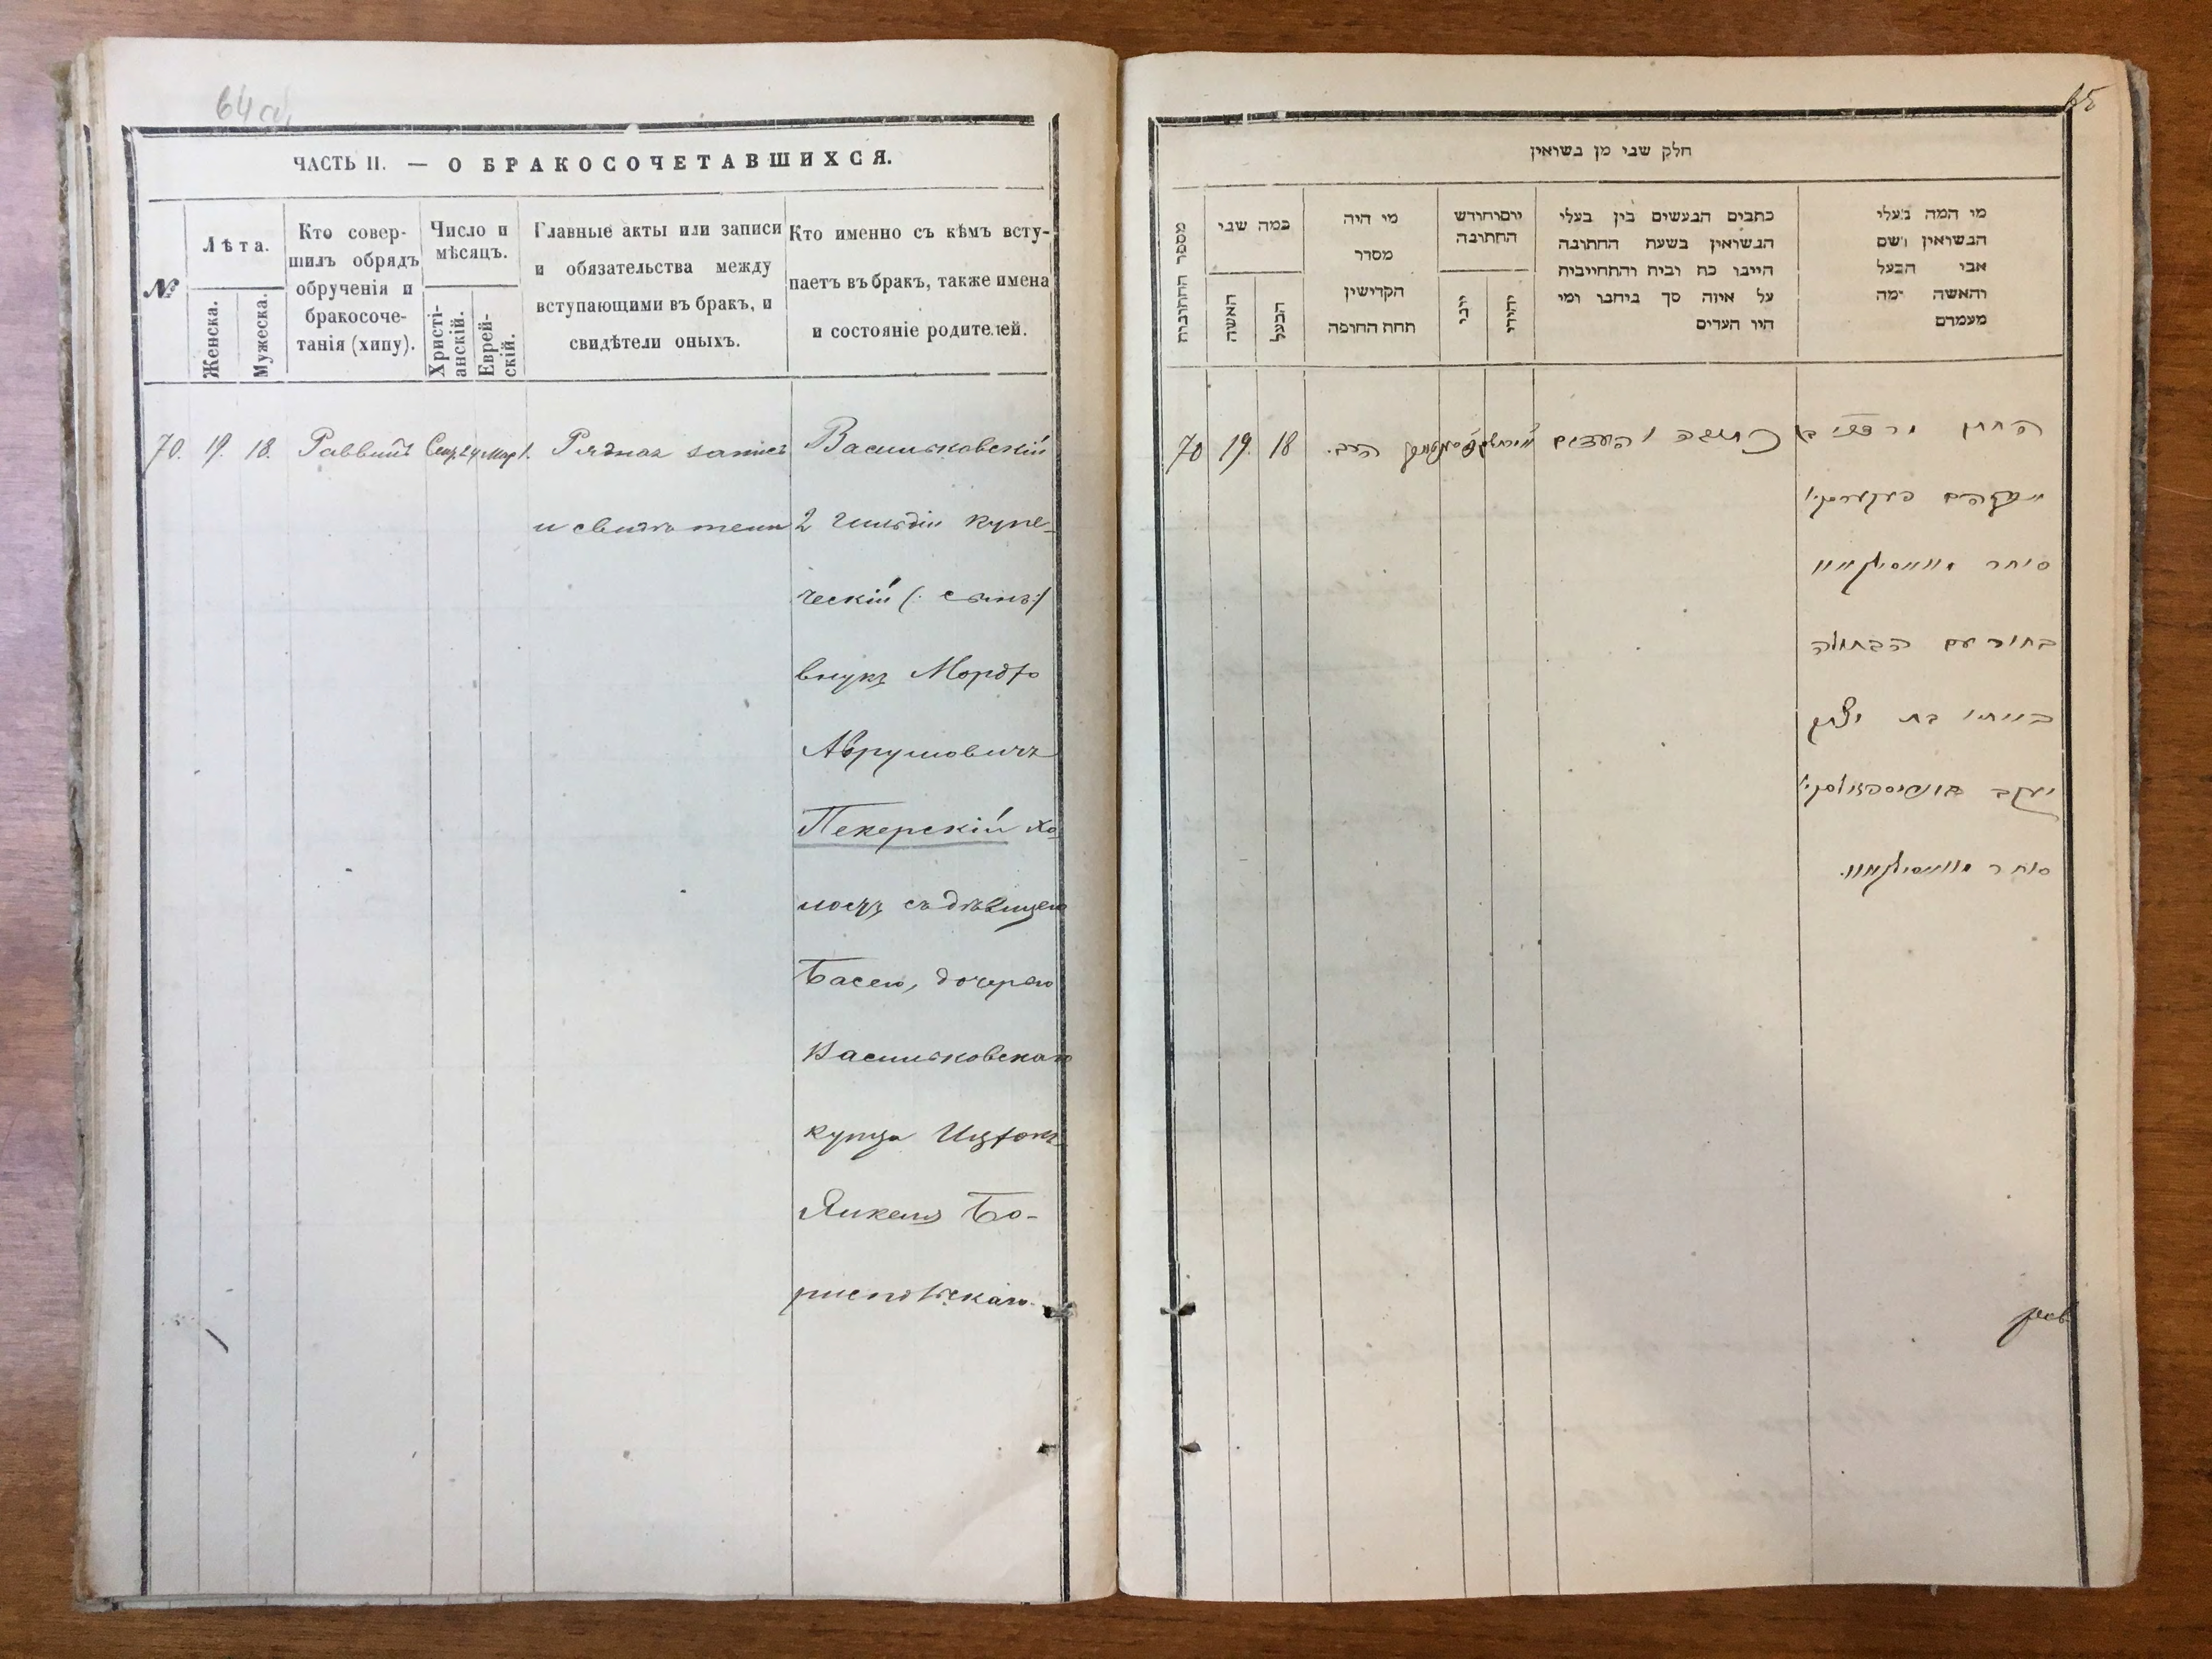 64 об.
ЧАСТЬ II. — О БРАКОСОЧЕТАВШИХСЯ.
№
Лѣта.
Женска.
Мужеска.
Кто совер-
шилъ обрядъ
обрученія и
бракосоче-
танія (хипу).
Число и
мѣсяцъ.
Христі-
анскій.
Еврей-
скій.
Главные акты или записи
и обязательства между
вступающими въ бракъ, и
свидѣтели оныхъ.
Кто именно съ кѣмъ всту-
паетъ въ бракъ, также имена
и состояніе родителей.
70. 19. 18. Раввинъ Сен. 24 1. Рядная запись
и свидѣтели
Васильковскій
2 гильдіи купе-
ческій (: сынъ :)
внукъ Мордко
Абрумовичъ
Пекерскій хо
лостъ съ дѣвицею
Басею, дочерью
Васильковскаго
купца Ицхокъ
Янкеля Бо-
риспольскаго.
65
חלק שבי מן בשואין
מספר החתובות
כמה שבי
האשה
הבעל
מי היה
מסדר
הקדישין
תחת החופה
יום וחודש
החתובה
יובי
יהודי
כתבים הבעשים בין בעלי
הבשואין בשעת החתובה
הייבו כח וביח והתחייביח
על איזה סך ביחבו ומי
היו העדים
מי המה בעלי
הבשואין ושם
אבי הבעל
והאשה ומה
מעמדם
70 19. 18 הרב.
כתובה ועדים
החתן מרדכי בן
אברהם פעקערסקי
סוחר וואסילקאוו
בחור עם הבתולה
בת יצחק
יעקב
סוחר וואסילקאוו.